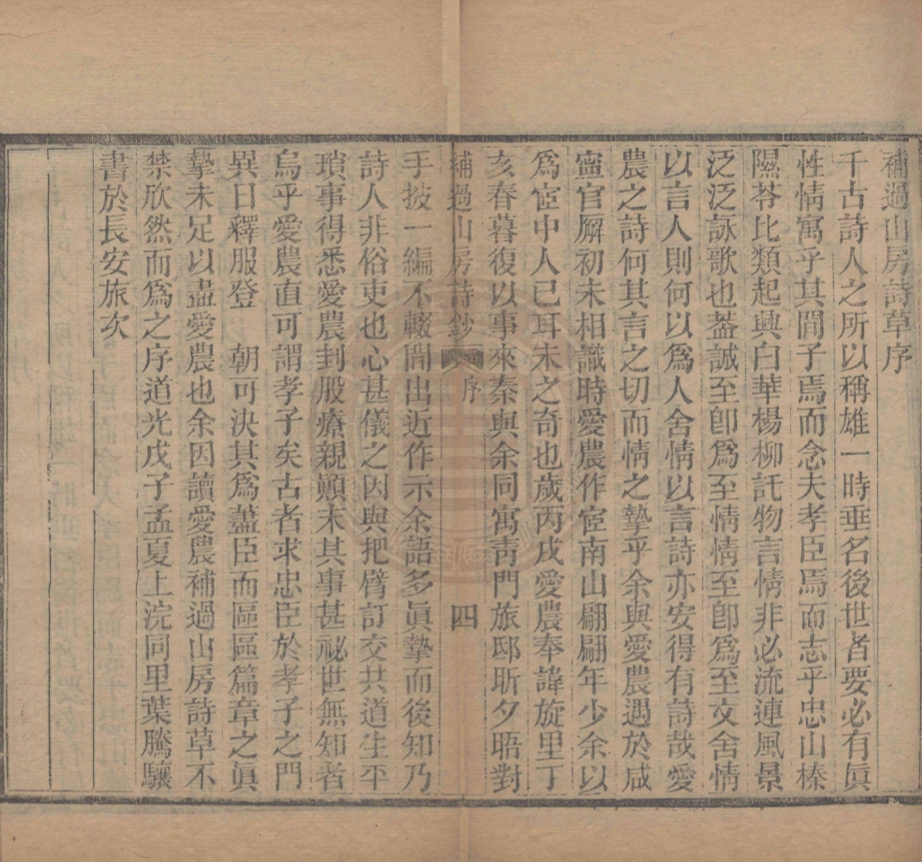 補過山房詩草序
千古詩人之所以稱雄一時垂名後世者要必有眞
性情寓乎其間子焉而念夫孝臣焉而志乎忠山榛
隰苓比類起興白華楊柳託物言情非必流連風景
泛泛詠歌也葢誠至卽爲至情情至卽爲至文舍情
以言人則何以爲人舍情以言詩亦安得有詩哉愛
農之詩何其言之切而情之摯乎余與愛農遇於咸
寧官廨初未相識時愛農作宦南山翩翩年少余以
爲宦中人已耳未之奇也歲丙戌愛農奉諱旋里丁
亥春暮復以事來秦與余同寓靑門旅邸昕夕晤對
補過山房詩鈔 序 四
手披一編不輟間出近作示余語多眞摯而後知乃
詩人非俗吏也心甚儀之因與把臂訂交共道生平
瑣事得悉愛農刲股療親顚末其事甚祕世無知者
烏乎愛農直可謂孝子矣古者求忠臣於孝子之門
異日釋服登 朝可決其爲藎臣而區區篇章之眞
摯未足以盡愛農也余因讀愛農補過山房詩草不
禁欣然而爲之序道光戊子孟夏上浣同里葉騰驤
書於長安旅次